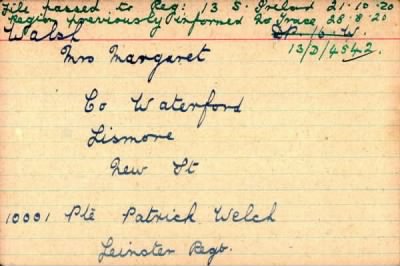 File passed to Reg: 13 S. Ireland 21.10.20
Region previously informed No Trace 28.8.20
Walsh
DP/6.W.
Mrs Margaret
13/D/4542.
Co Waterford
Lismore
New St
10001 Pte Patrick Welch
Leinster Regt.